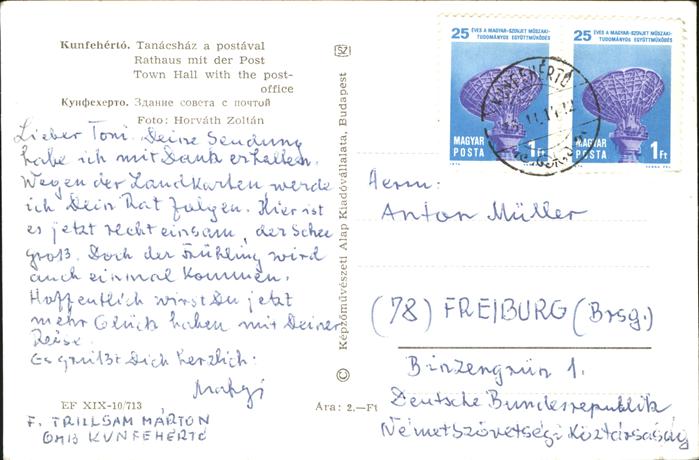 Kunfehértó. Tanácsház a postával
Rathaus mit der Post
Town Hall with the post-
office
Кунфехерто. Здание совета с почтой
Foto: Horváth Zoltán
Lieber Toni. Deine Sendung
habe ich mit Dank erhalten.
Wegen der Landkarten werde
ich Dein Rat folgen. Hier ist
es jetzt recht einsam, der Schee
groß. Doch der Frühling wird
auch einmal kommen.
Hoffentlich wirst Du jetzt
mehr Glück haben mit Deiner
Reise.
Es grüßt Dich herzlich:
EF XIX-10/713
Ára: 2.—Ft
F. TRILLSAM MÁRTON
KUNFEHÉRTÓ
Képzőművészeti Alap Kiadóvállalata, Budapest
25 ÉVES A MAGYAR-SZOVJET MŰSZAKI-
TUDOMÁNYOS EGYÜTTMŰKÖDÉS
MAGYAR
POSTA
1Ft
25 ÉVES A MAGYAR-SZOVJET MŰSZAKI-
TUDOMÁNYOS EGYÜTTMŰKÖDÉS
MAGYAR
POSTA
1Ft
KUNFEHÉRTÓ
Herrn:
Anton Müller
(78) FREIBURG (Brsg.)
Binzengrün 1.
Deutsche Bundesrepublik
Németszövetségi Köztársaság